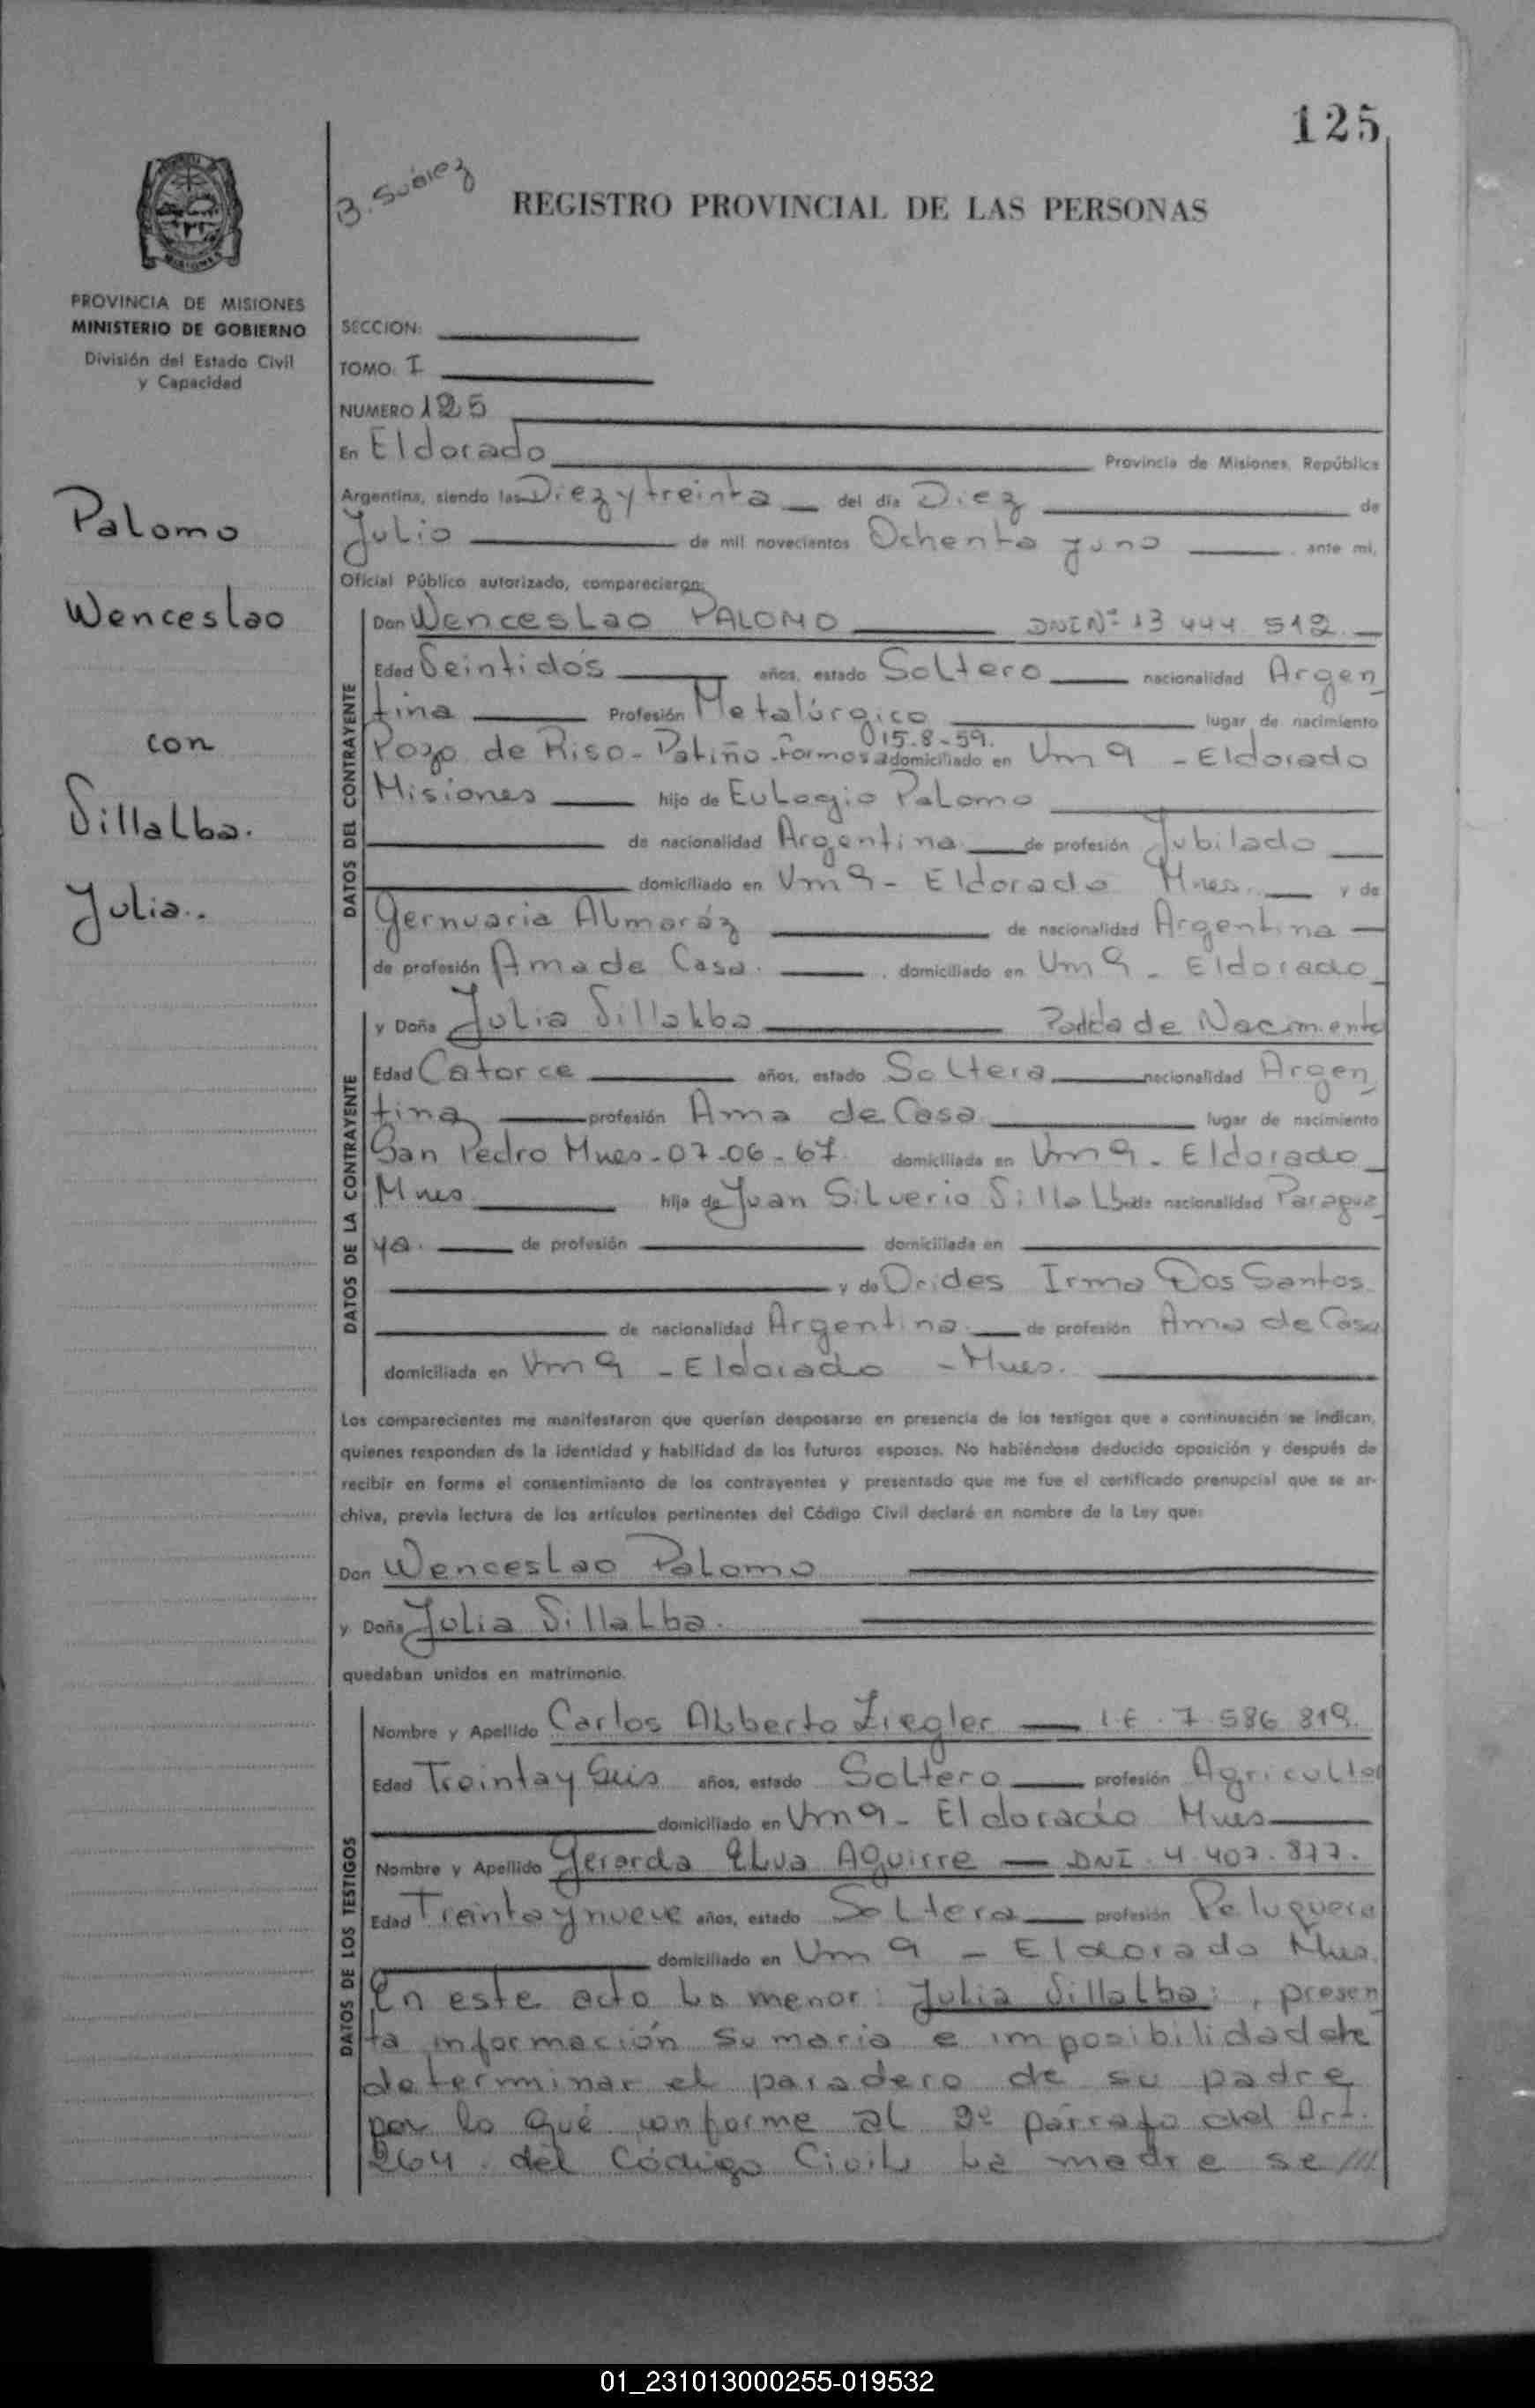 125
B. Suárez
REGISTRO PROVINCIAL DE LAS PERSONAS
PROVINCIA DE MISIONES
MINISTERIO DE GOBIERNO
División del Estado Civil
y Capacidad
Palomo
Wenceslao
con
Villalba.
Julia..
SECCION:
TOMO: I
NUMERO 125
En Eldorado Provincia de Misiones, República
Argentina, siendo las Diez y treinta del día Diez de
Julio de mil novecientos Ochenta y uno ante mi,
Oficial Público autorizado, comparecieron:
DATOS DEL CONTRAYENTE
Don Wenceslao PALOMO DNI Nº 13 444 512.
Edad Veintidós años, estado Soltero nacionalidad Argen
tina Profesión Metalúrgico lugar de nacimiento
15-8-59.
Pozo de Riso - Patiño - Formosa domiciliado en Vm 9 - Eldorado
Misiones hijo de Eulogio Palomo
de nacionalidad Argentina de profesión Jubilado
domiciliado en Vm 9 - Eldorado Mnes. y de
Gernuaria Almaráz de nacionalidad Argentina
de profesión Ama de Casa. domiciliado en Vm 9 - Eldorado
DATOS DE LA CONTRAYENTE
y Doña Julia Villalba de Nacimiento
Edad Catorce años, estado Soltera nacionalidad Argen
tina profesión Ama de Casa lugar de nacimiento
San Pedro Mnes - 07-06-67. domiciliada en Vm 9 - Eldorado
Mnes hija de Juan Silverio Villalba de nacionalidad Paragua
ya. de profesión domiciliada en
y de Orides Irma Dos Santos
de nacionalidad Argentina de profesión Ama de Casa
domiciliada en Vm 9 - Eldorado - Mnes.
Los comparecientes me manifestaron que querían desposarse en presencia de los testigos que a continuación se indican,
quienes responden de la identidad y habilidad de los futuros esposos. No habiéndose deducido oposición y después de
recibir en forma el consentimiento de los contrayentes y presentado que me fue el certificado prenupcial que se ar-
chiva, previa lectura de los artículos pertinentes del Código Civil declaré en nombre de la Ley que:
Don Wenceslao Palomo
y Doña Julia Villalba.
quedaban unidos en matrimonio.
DATOS DE LOS TESTIGOS
Nombre y Apellido Carlos Alberto Ziegler L.E. 7.586 819.
Edad Treinta y Seis años, estado Soltero profesión Agricultor
domiciliado en Vm 9 - Eldorado Mnes
Nombre y Apellido Gerarda Elva Aguirre DNI. 4.407.877.
Edad Treinta y nueve años, estado Soltera profesión Peluquera
domiciliado en Vm 9 - Eldorado Mnes.
En este acto la menor: Julia Villalba:, presen
ta información Sumaria e imposibilidad de
determinar el paradero de su padre
por lo qué conforme al 2º párrafo del Art.
264. del Código Civil la madre se ///
01_231013000255-019532